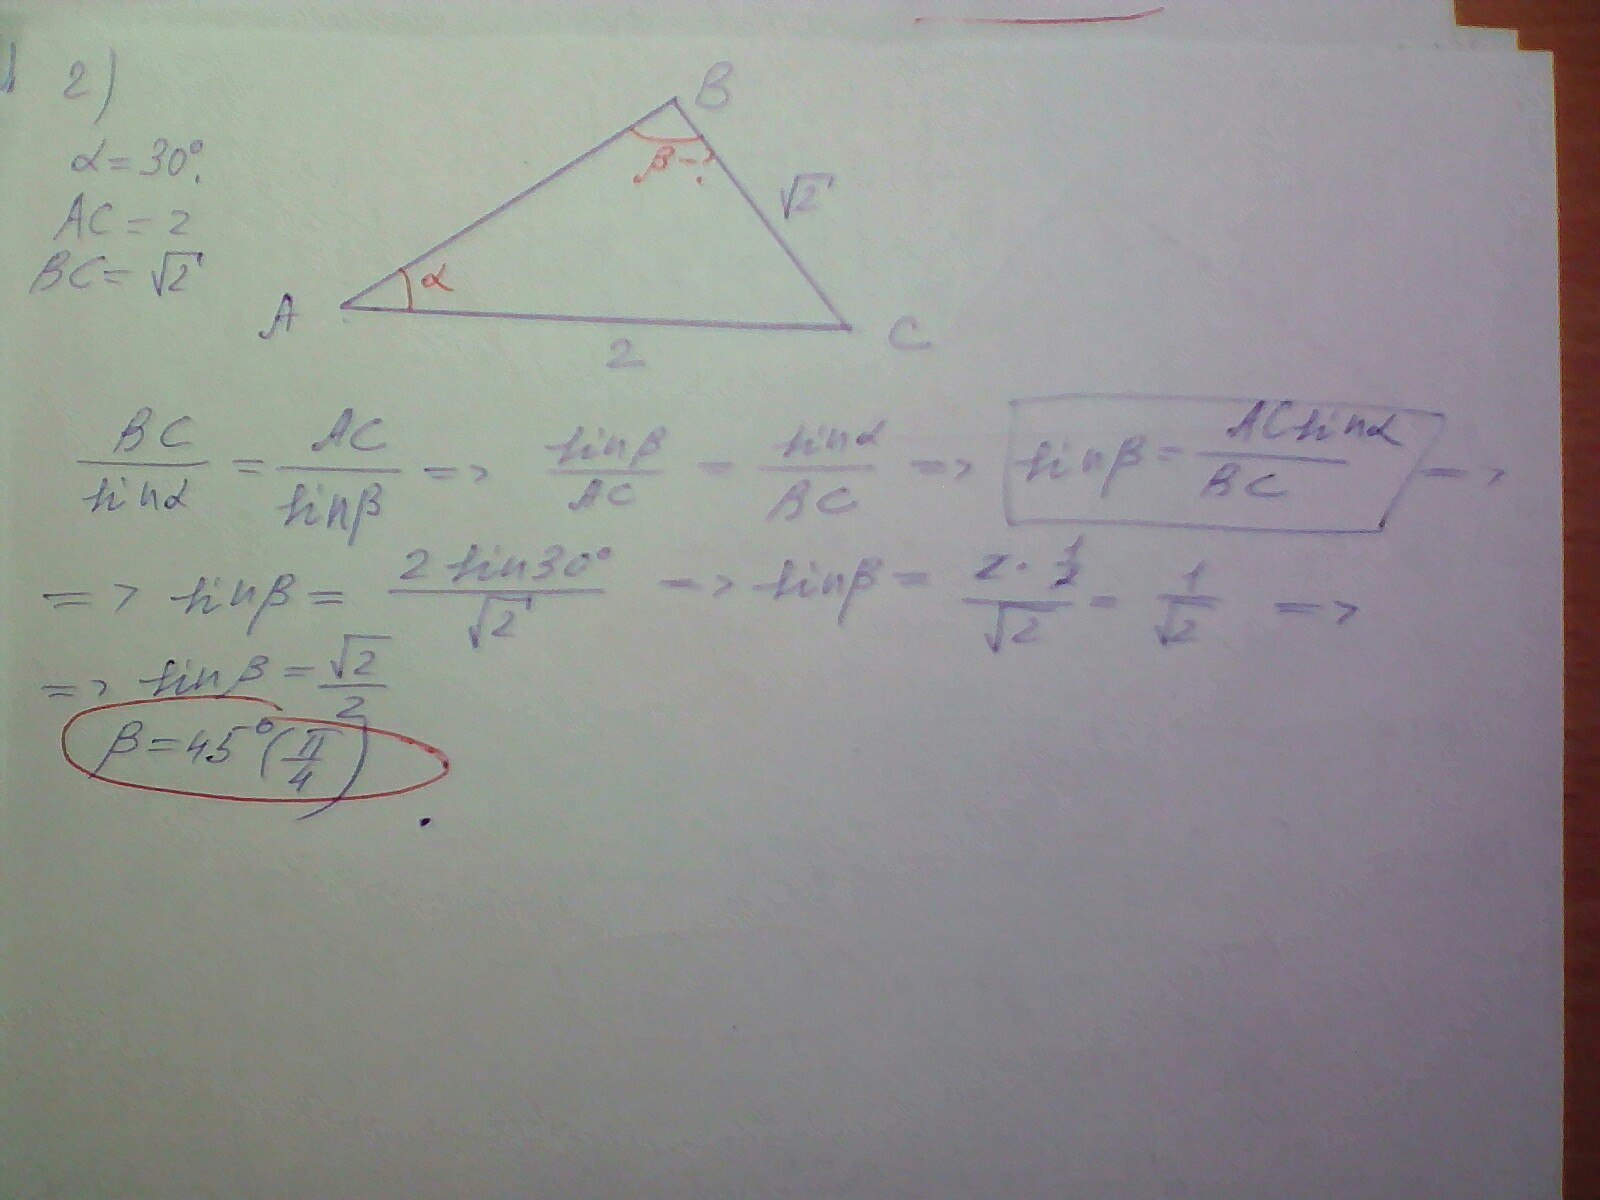 2)
α = 30°.
AC = 2
BC = √2
B
β - ?
√2
α
A
C
2
BC/sinα = AC/sinβ => sinβ/AC = sinα/BC => sinβ = ACsinα/BC =>
=> sinβ = 2 sin30°/√2 => sinβ = 2 · 1/2/√2 = 1/√2 =>
=> sinβ = √2/2
β = 45° (π/4)